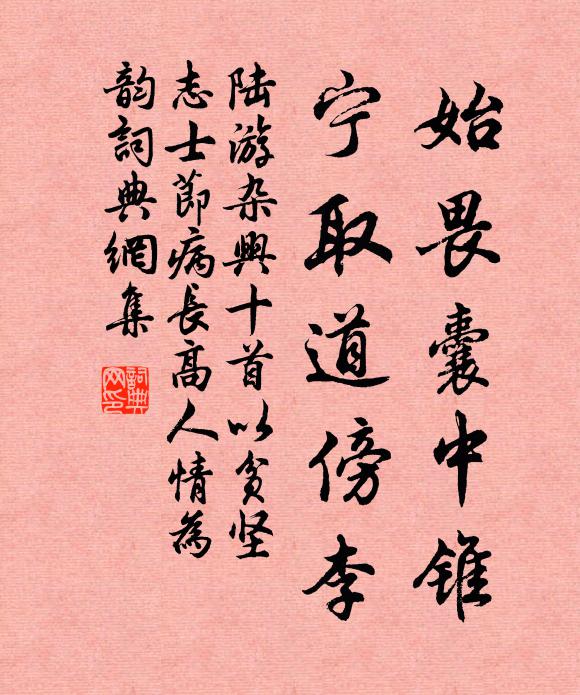 始畏囊中锥
宁取道傍李
陆游杂興十首以贫坚
志士節病長高人情為
韵詞典網集
詞典
网印